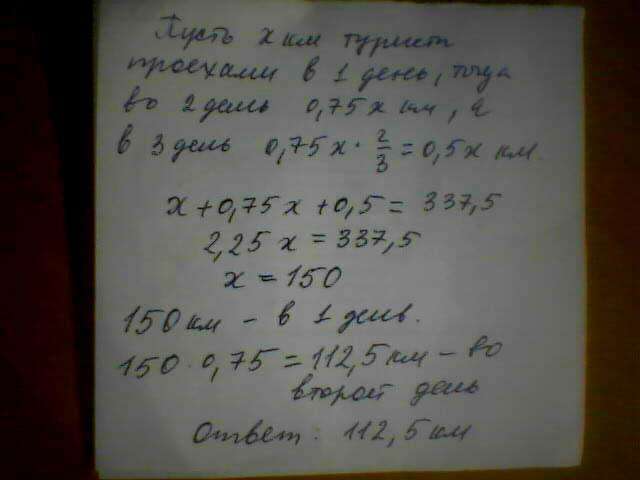 Пусть x км туристы
проехали в 1 день, тогда
во 2 день 0,75x км, а
в 3 день 0,75x · 2/3 = 0,5x км.
x + 0,75x + 0,5 = 337,5
2,25x = 337,5
x = 150
150 км – в 1 день.
150 · 0,75 = 112,5 км – во
второй день
Ответ: 112,5 км